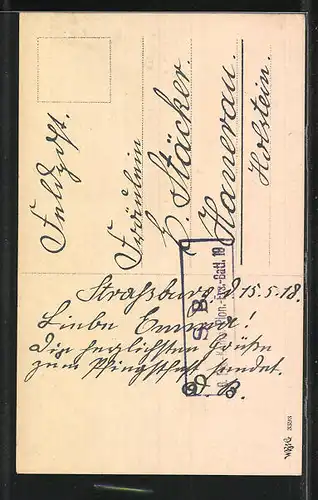 Feldpost.
Fräulein
E. Stäcker.
Hanerau.
Holstein.
Straßburg, d 15.5.18.
Liebe Emma!
Die herzlichsten Grüße
zum Pfingstfest sendet
B.
S. B.
Pion.-Ers.-Batl. 19